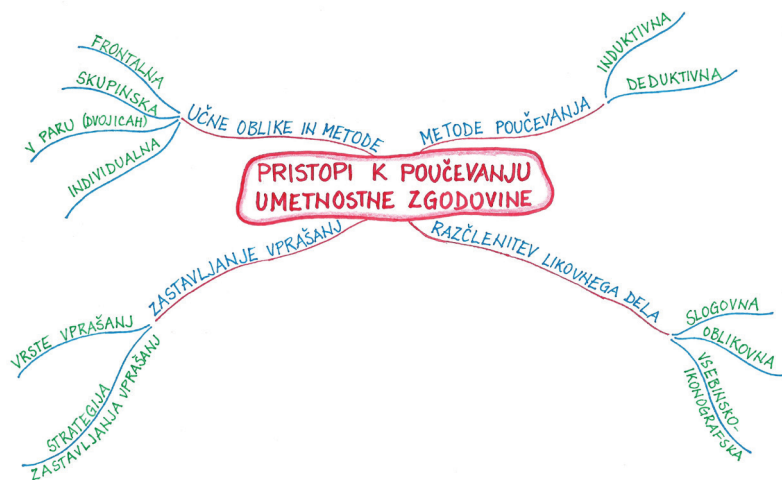 PRISTOPI K POUČEVANJU
UMETNOSTNE ZGODOVINE
UČNE OBLIKE IN METODE
FRONTALNA
SKUPINSKA
V PARU (DVOJICAH)
INDIVIDUALNA
METODE POUČEVANJA
INDUKTIVNA
DEDUKTIVNA
ZASTAVLJANJE VPRAŠANJ
VRSTE VPRAŠANJ
STRATEGIJA
ZASTAVLJANJA VPRAŠANJ
RAZČLENITEV LIKOVNEGA DELA
SLOGOVNA
OBLIKOVNA
VSEBINSKO-
IKONOGRAFSKA